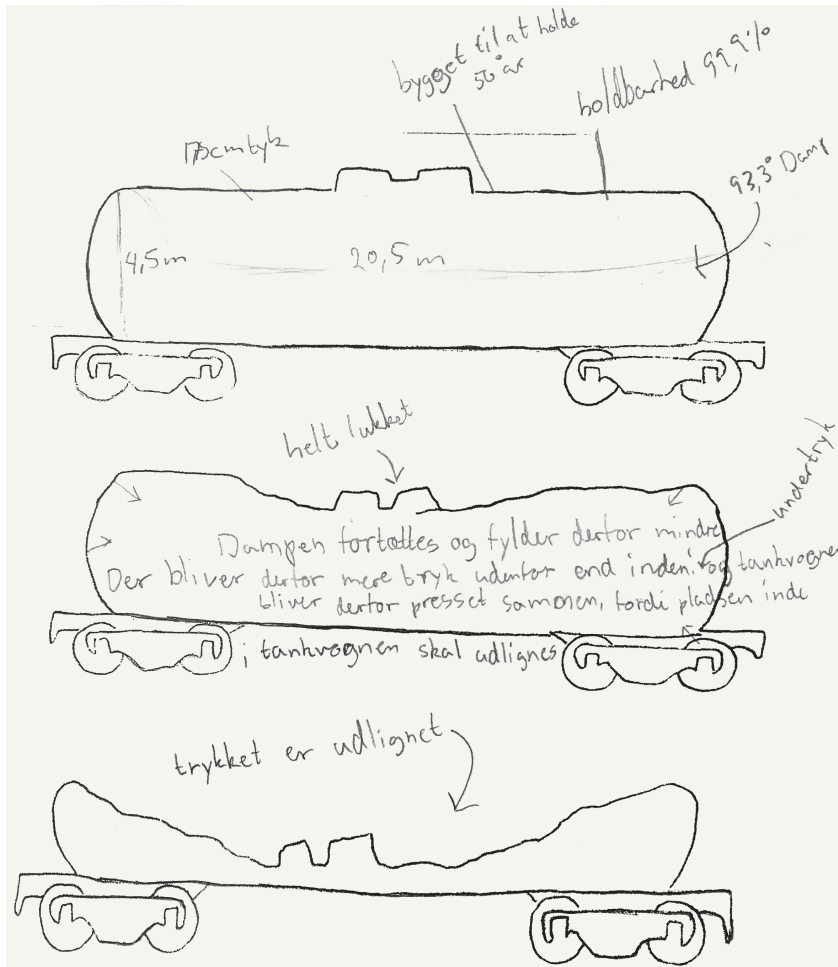 bygget til at holde
50 år
holdbarhed 99,9%
cm tyk
93,3° Damp
4,5 m
20,5 m
helt lukket
undertryk
Dampen fortættes og fylder derfor mindre
Der bliver derfor mere tryk udenfor end indeni og tankvognen
bliver derfor presset sammen, fordi pladsen inde
i tankvognen skal udlignes
trykket er udlignet